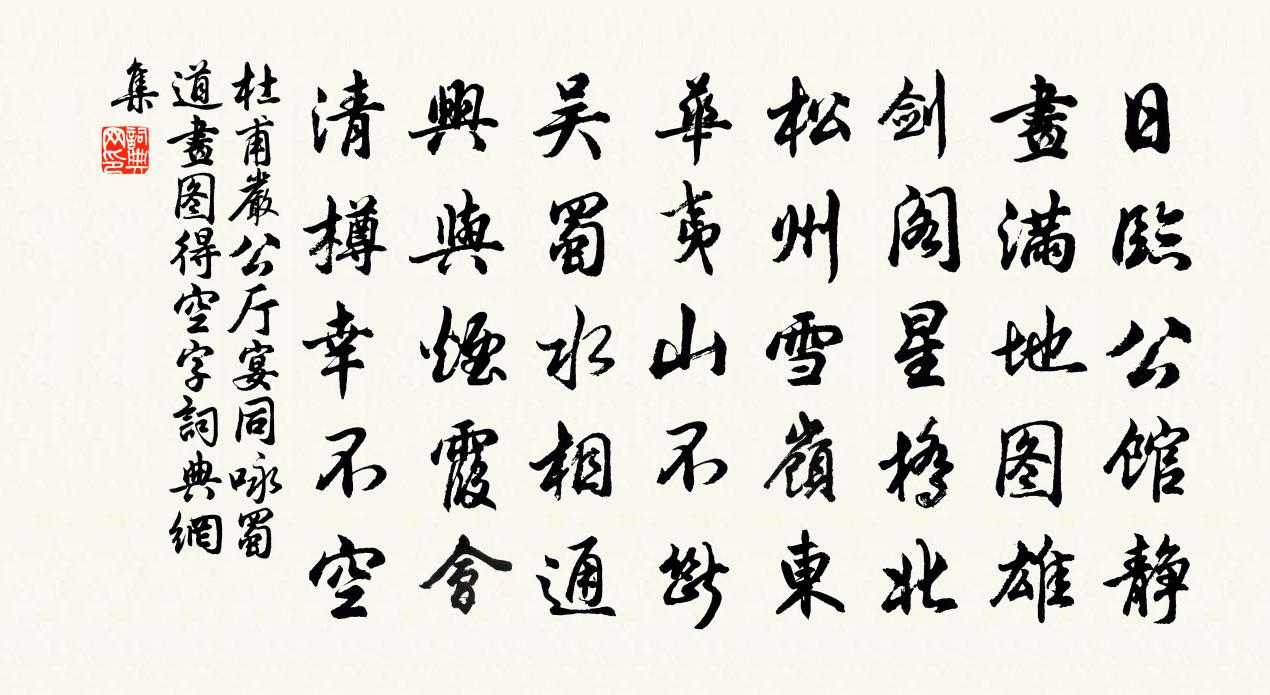 日臨公館静
畫滿地图雄
剑阁星橋北
松州雪嶺東
華夷山不斷
吴蜀水相通
興與煙霞會
清樽幸不空
杜甫嚴公厅宴同咏蜀
道畫图得空字詞典網
集
詞典网印